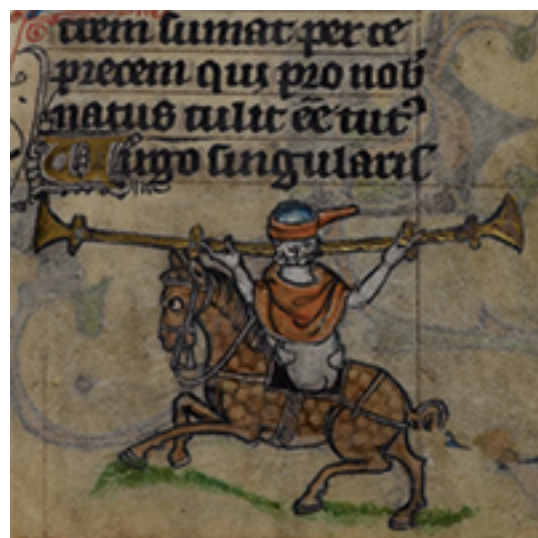 trem sumat per te
precem qui pro nob᾽
natus tulit eē tuꝰ
Uirgo singularis